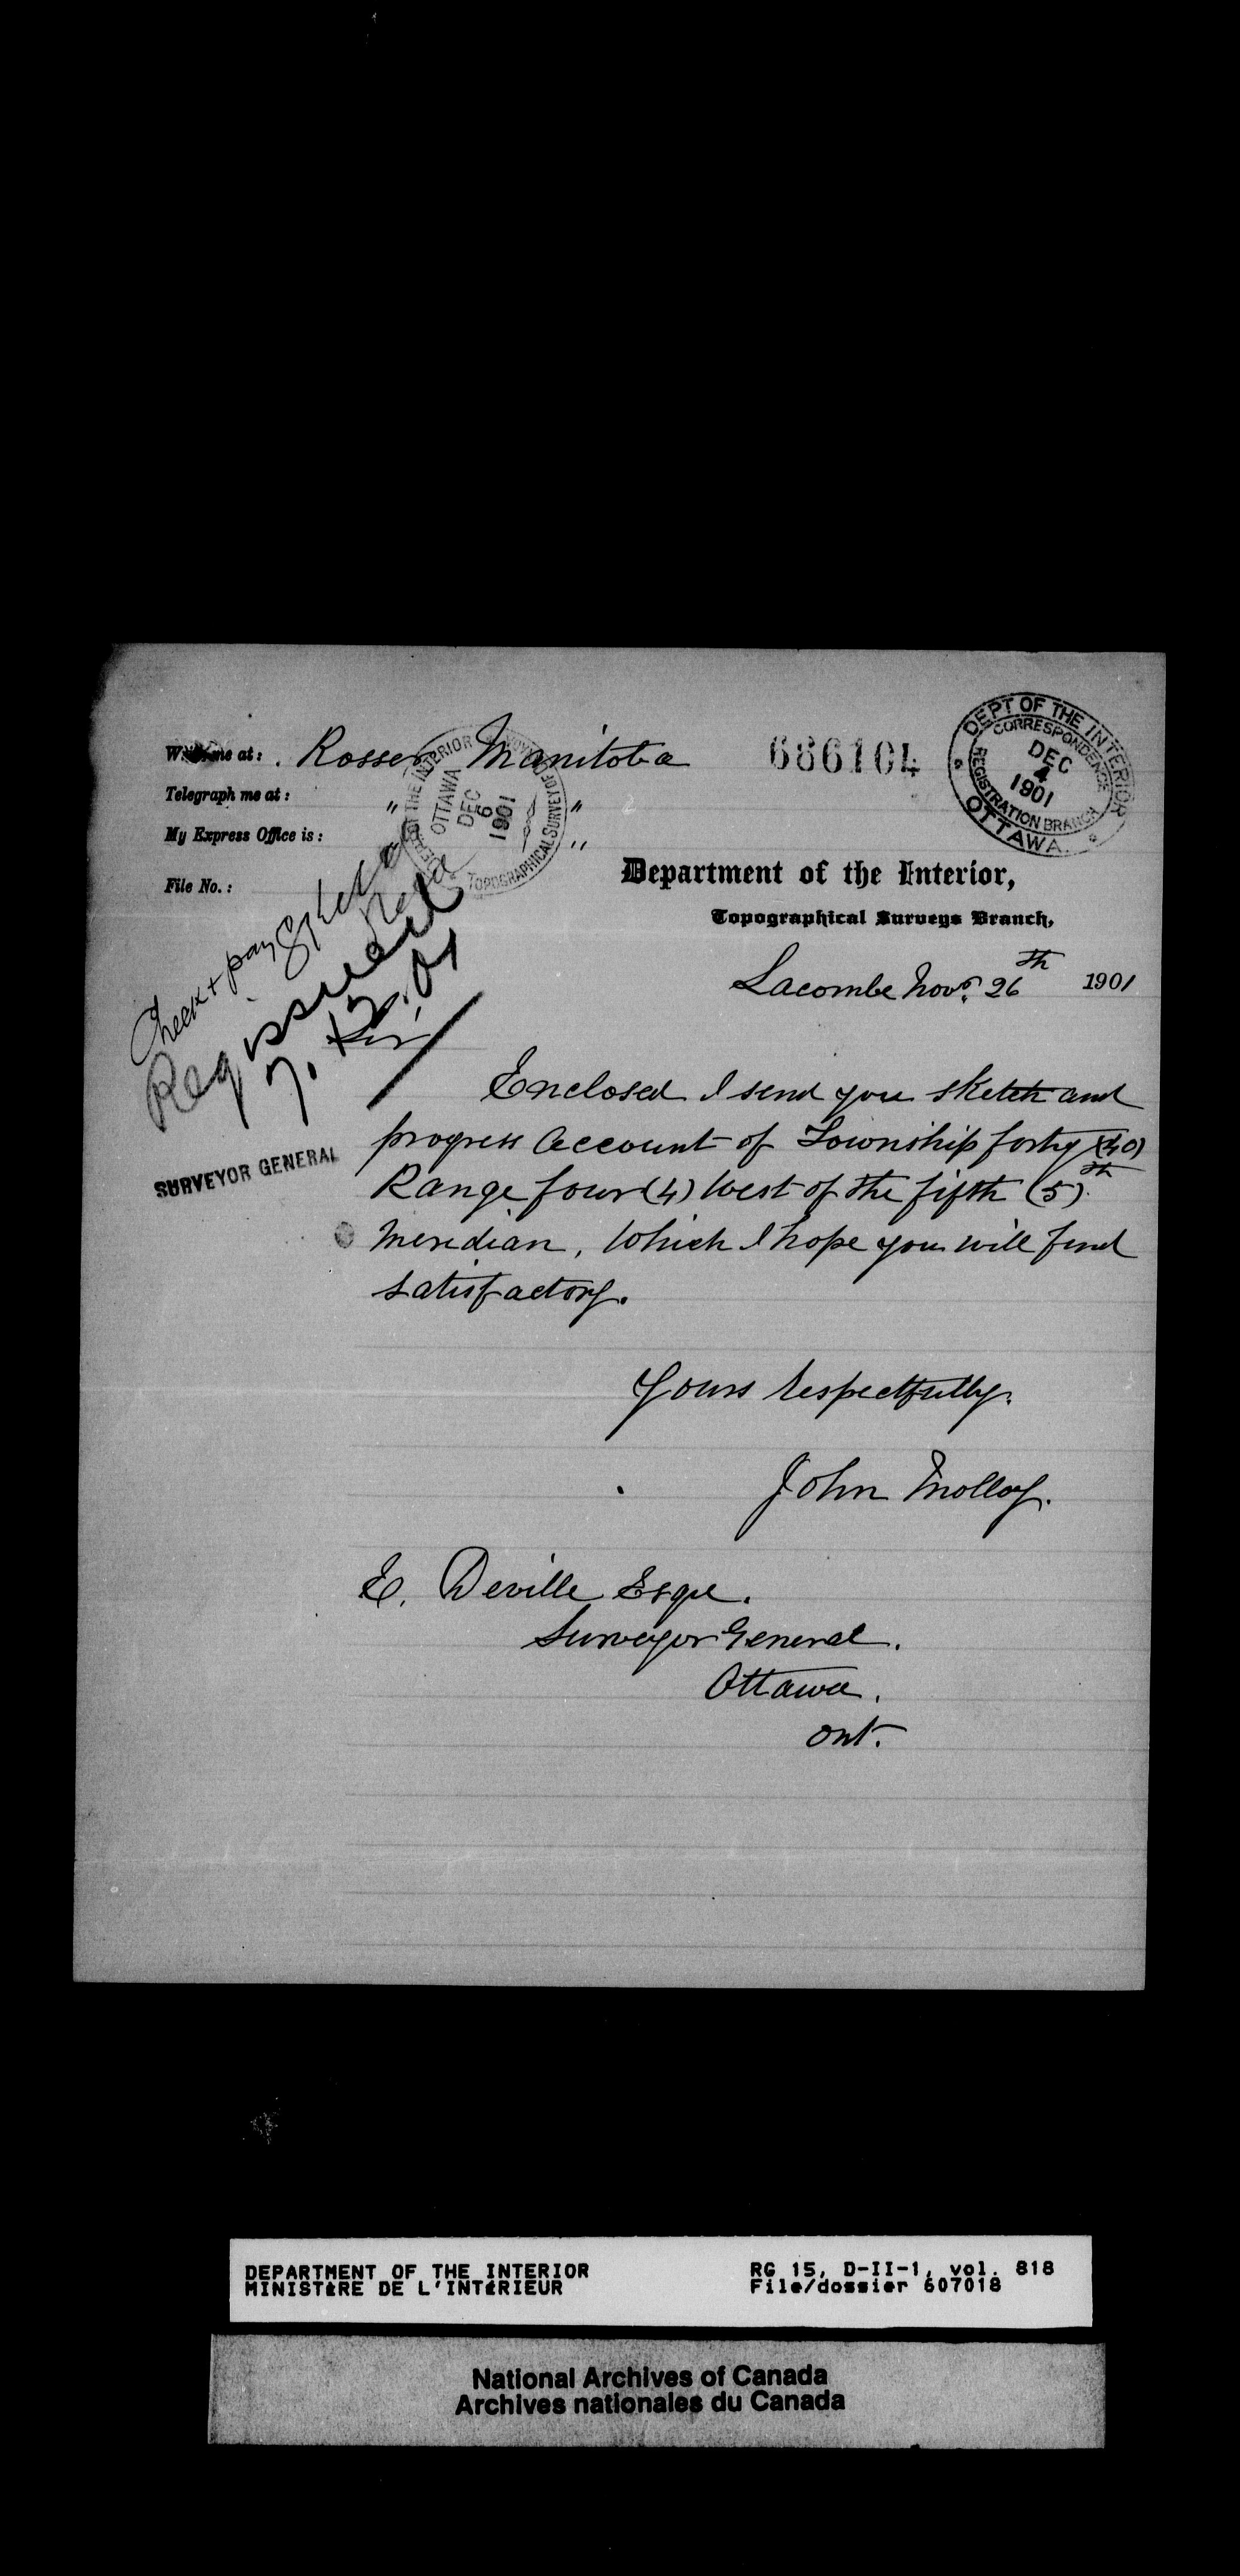 Write me at: Rosser Manitoba
686104
DEPT OF THE INTERIOR
CORRESPONDENCE
DEC
4
1901
REGISTRATION BRANCH
OTTAWA.
Telegraph me at: " "
My Express Office is: " "
File No.:
OTTAWA
DEC
6
1901
TOPOGRAPHICAL SURVEYS OF
Department of the Interior,
Topographical Surveys Branch,
Lacombe Nov. 26th 1901
Check + pay
Req issued
7.12.01
SURVEYOR GENERAL
Sir,
Enclosed I send you sketch and
progress account of Township forty (40)
Range four (4) West of the fifth (5)th
Meridian, Which I hope you will find
satisfactory.
Yours respectfully.
John Molloy.
E. Deville Esqre.
Surveyor General.
Ottawa.
Ont.
DEPARTMENT OF THE INTERIOR
MINISTÈRE DE L'INTÉRIEUR
RG 15, D-II-1, vol. 818
File/dossier 607018
National Archives of Canada
Archives nationales du Canada